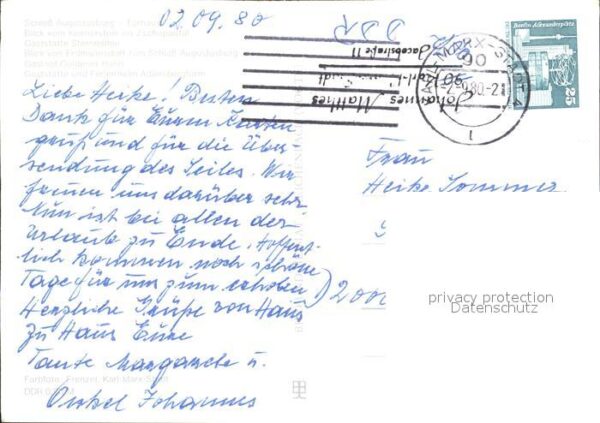 02.09.80
DDR
Schloß Augustusburg
Blick vom Kunnerstein ins Zschopautal
Gaststätte Sternmühle
Blick vom Erdmannstein zum Schloß Augustusburg
Gasthof Goldener Hahn
Gaststätte und Ferienheim
Johannes Matthes
Jacobstraße 11
90
KARL-MARX-STADT 4
90
-2.9.80-2
1
Berlin Alexanderplatz
DDR
25
Liebe Heike! Besten
Dank für Euren Karten
gruß und für die Über-
sendung des Seiles. Wir
freuen uns darüber sehr
Nun ist bei allen der
Urlaub zu Ende. Hoffent-
lich kommen noch schöne
Tage für uns zum erholen
Herzliche Grüße von Haus
zu Haus Eure
Tante Margarete u.
Onkel Johannes
Frau
Heike Sommer
2000
privacy protection
Datenschutz
DDR